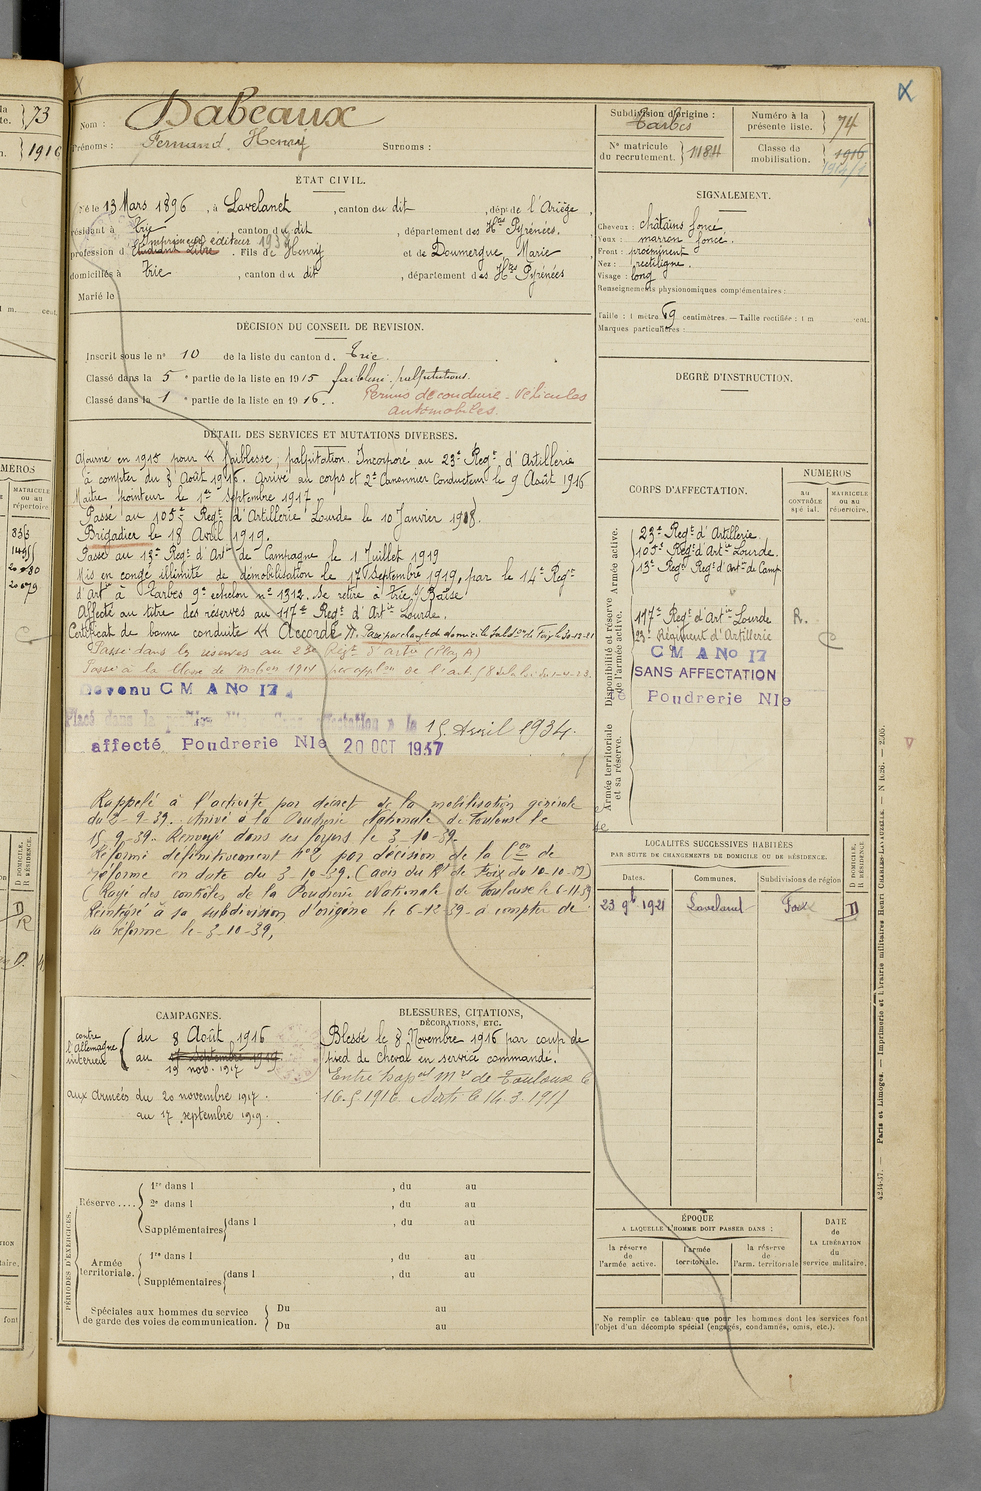 la
te. 73
1916
MEROS
MATRICULE
ou au
répertoire.
Nom : Dabeaux
Prénoms : Fernand, Henry Surnoms :
Subdivision d'origine :
Tarbes
Numéro à la
présente liste. 74
N° matricule
du recrutement. 1184
Classe de
mobilisation. 1916
ÉTAT CIVIL.
Né le 13 Mars 1896, à Lavelanet, canton du dit, dép. de l'Ariège,
résidant à Trie, canton du dit, département des Htes Pyrénées,
Imprimeur éditeur 1934
profession d'Etudiant Libre. Fils de Henry et de Doumergue, Marie
domiciliés à Trie, canton du dit, département des Htes Pyrénées
Marié le
DÉCISION DU CONSEIL DE REVISION.
Inscrit sous le n° 10 de la liste du canton d. Trie.
Classé dans la 5e partie de la liste en 1915 faiblesse, palpitations.
Classé dans la 1e partie de la liste en 1916. Permis de conduire - véhicules
automobiles.
DÉTAIL DES SERVICES ET MUTATIONS DIVERSES.
Ajourné en 1915 pour faiblesse, palpitation. Incorporé au 23e Regt d'Artillerie
à compter du 8 Août 1916. Arrivé au corps et 2e Canonnier Conducteur le 9 Août 1916
Maître pointeur le 1er Septembre 1917.
Passé au 105e Regt d'Artillerie Lourde le 10 Janvier 1918.
Brigadier le 18 Avril 1919.
Passé au 13e Regt d'Artie de Campagne le 1 Juillet 1919
Mis en congé illimité de démobilisation le 17 Septembre 1919, par le 14e Regt
d'Artie à Tarbes 9e echelon n° 1312. Se retire à Trie s/ Baïse
Affecté au titre des réserves au 117e Regt d'Artie Lourde.
Certificat de bonne conduite Accordé. Passé par changt de domicile la subdon de Foix le
Passé dans les réserves au 23e Régt d'artie (Plan A)
Passé à la classe de mobon 1914 par applon de l'art. 58 de la loi du 1-4-23.
Devenu C M A No 17
Placé dans la position dite Sans affectation à la 15 Avril 1934.
affecté Poudrerie Nle 20 OCT 1937
Rappelé à l'activité par décret de la mobilisation générale
du 2-9-39. Arrivé à la Poudrerie Nationale de Toulouse le
15-9-39. Renvoyé dans ses foyers le 3-10-39.
Réformé définitivement n° 2 par décision de la Con de
réforme en date du 3-10-39. (avis du Rt de Foix du 10-10-39)
(Rayé des contrôles de la Poudrerie Nationale de Toulouse le 6-11-39
Réintégré à sa subdivision d'origine le 6-12-39 à compter de
la réforme le 3-10-39,
CAMPAGNES.
contre
l'Allemagne
intérieur
du 8 Août 1916
au 17 Septembre 1919
19 nov. 1917
aux armées du 20 novembre 1917.
au 17 septembre 1919.
BLESSURES, CITATIONS,
DÉCORATIONS, ETC.
Blessé le 8 Novembre 1916 par coup de
pied de cheval en service commandé.
Entré hopal Mre de Toulouse le
Sorti le 14.3.1917
PÉRIODES D'EXERCICES.
Réserve ....
1re dans l , du au
2e dans l , du au
Supplémentaires dans l , du au
Armée
territoriale.
1re dans l , du au
Supplémentaires dans l , du au
Spéciales aux hommes du service
de garde des voies de communication.
Du au
Du au
SIGNALEMENT.
Cheveux : châtains foncé
Yeux : marron foncé.
Front : proéminent
Nez : rectiligne.
Visage : long
Renseignements physionomiques complémentaires :
Taille : 1 mètre 69 centimètres. — Taille rectifiée : 1 m cent.
Marques particulières :
DEGRÉ D'INSTRUCTION.
CORPS D'AFFECTATION.
NUMÉROS
AU
CONTRÔLE
spécial.
MATRICULE
ou au
répertoire.
Armée active.
23e Regt d'Artillerie.
105e Regt d'Artie Lourde.
13e Regt Regt d'Artie de Camp
Disponibilité et réserve
de l'armée active.
117e Regt d'Artie Lourde R.
23e Régiment d'Artillerie
C M A No 17
SANS AFFECTATION
Poudrerie Nle
Armée territoriale
et sa réserve.
LOCALITÉS SUCCESSIVES HABITÉES
PAR SUITE DE CHANGEMENTS DE DOMICILE OU DE RÉSIDENCE.
Dates. Communes. Subdivisions de région
D DOMICILE.
R RÉSIDENCE.
23 9b 1921 Lavelanet Foix D
ÉPOQUE
A LAQUELLE L'HOMME DOIT PASSER DANS :
la réserve
de
l'armée active.
l'armée
territoriale.
la réserve
de
l'arm. territoriale
DATE
de
LA LIBÉRATION
du
service militaire.
No remplir ce tableau que pour les hommes dont les services font
l'objet d'un décompte spécial (engagés, condamnés, omis, etc.).
4234-37. — Paris et Limoges. — Imprimerie et Librairie militaires Henri CHARLES-LAVAUZELLE.